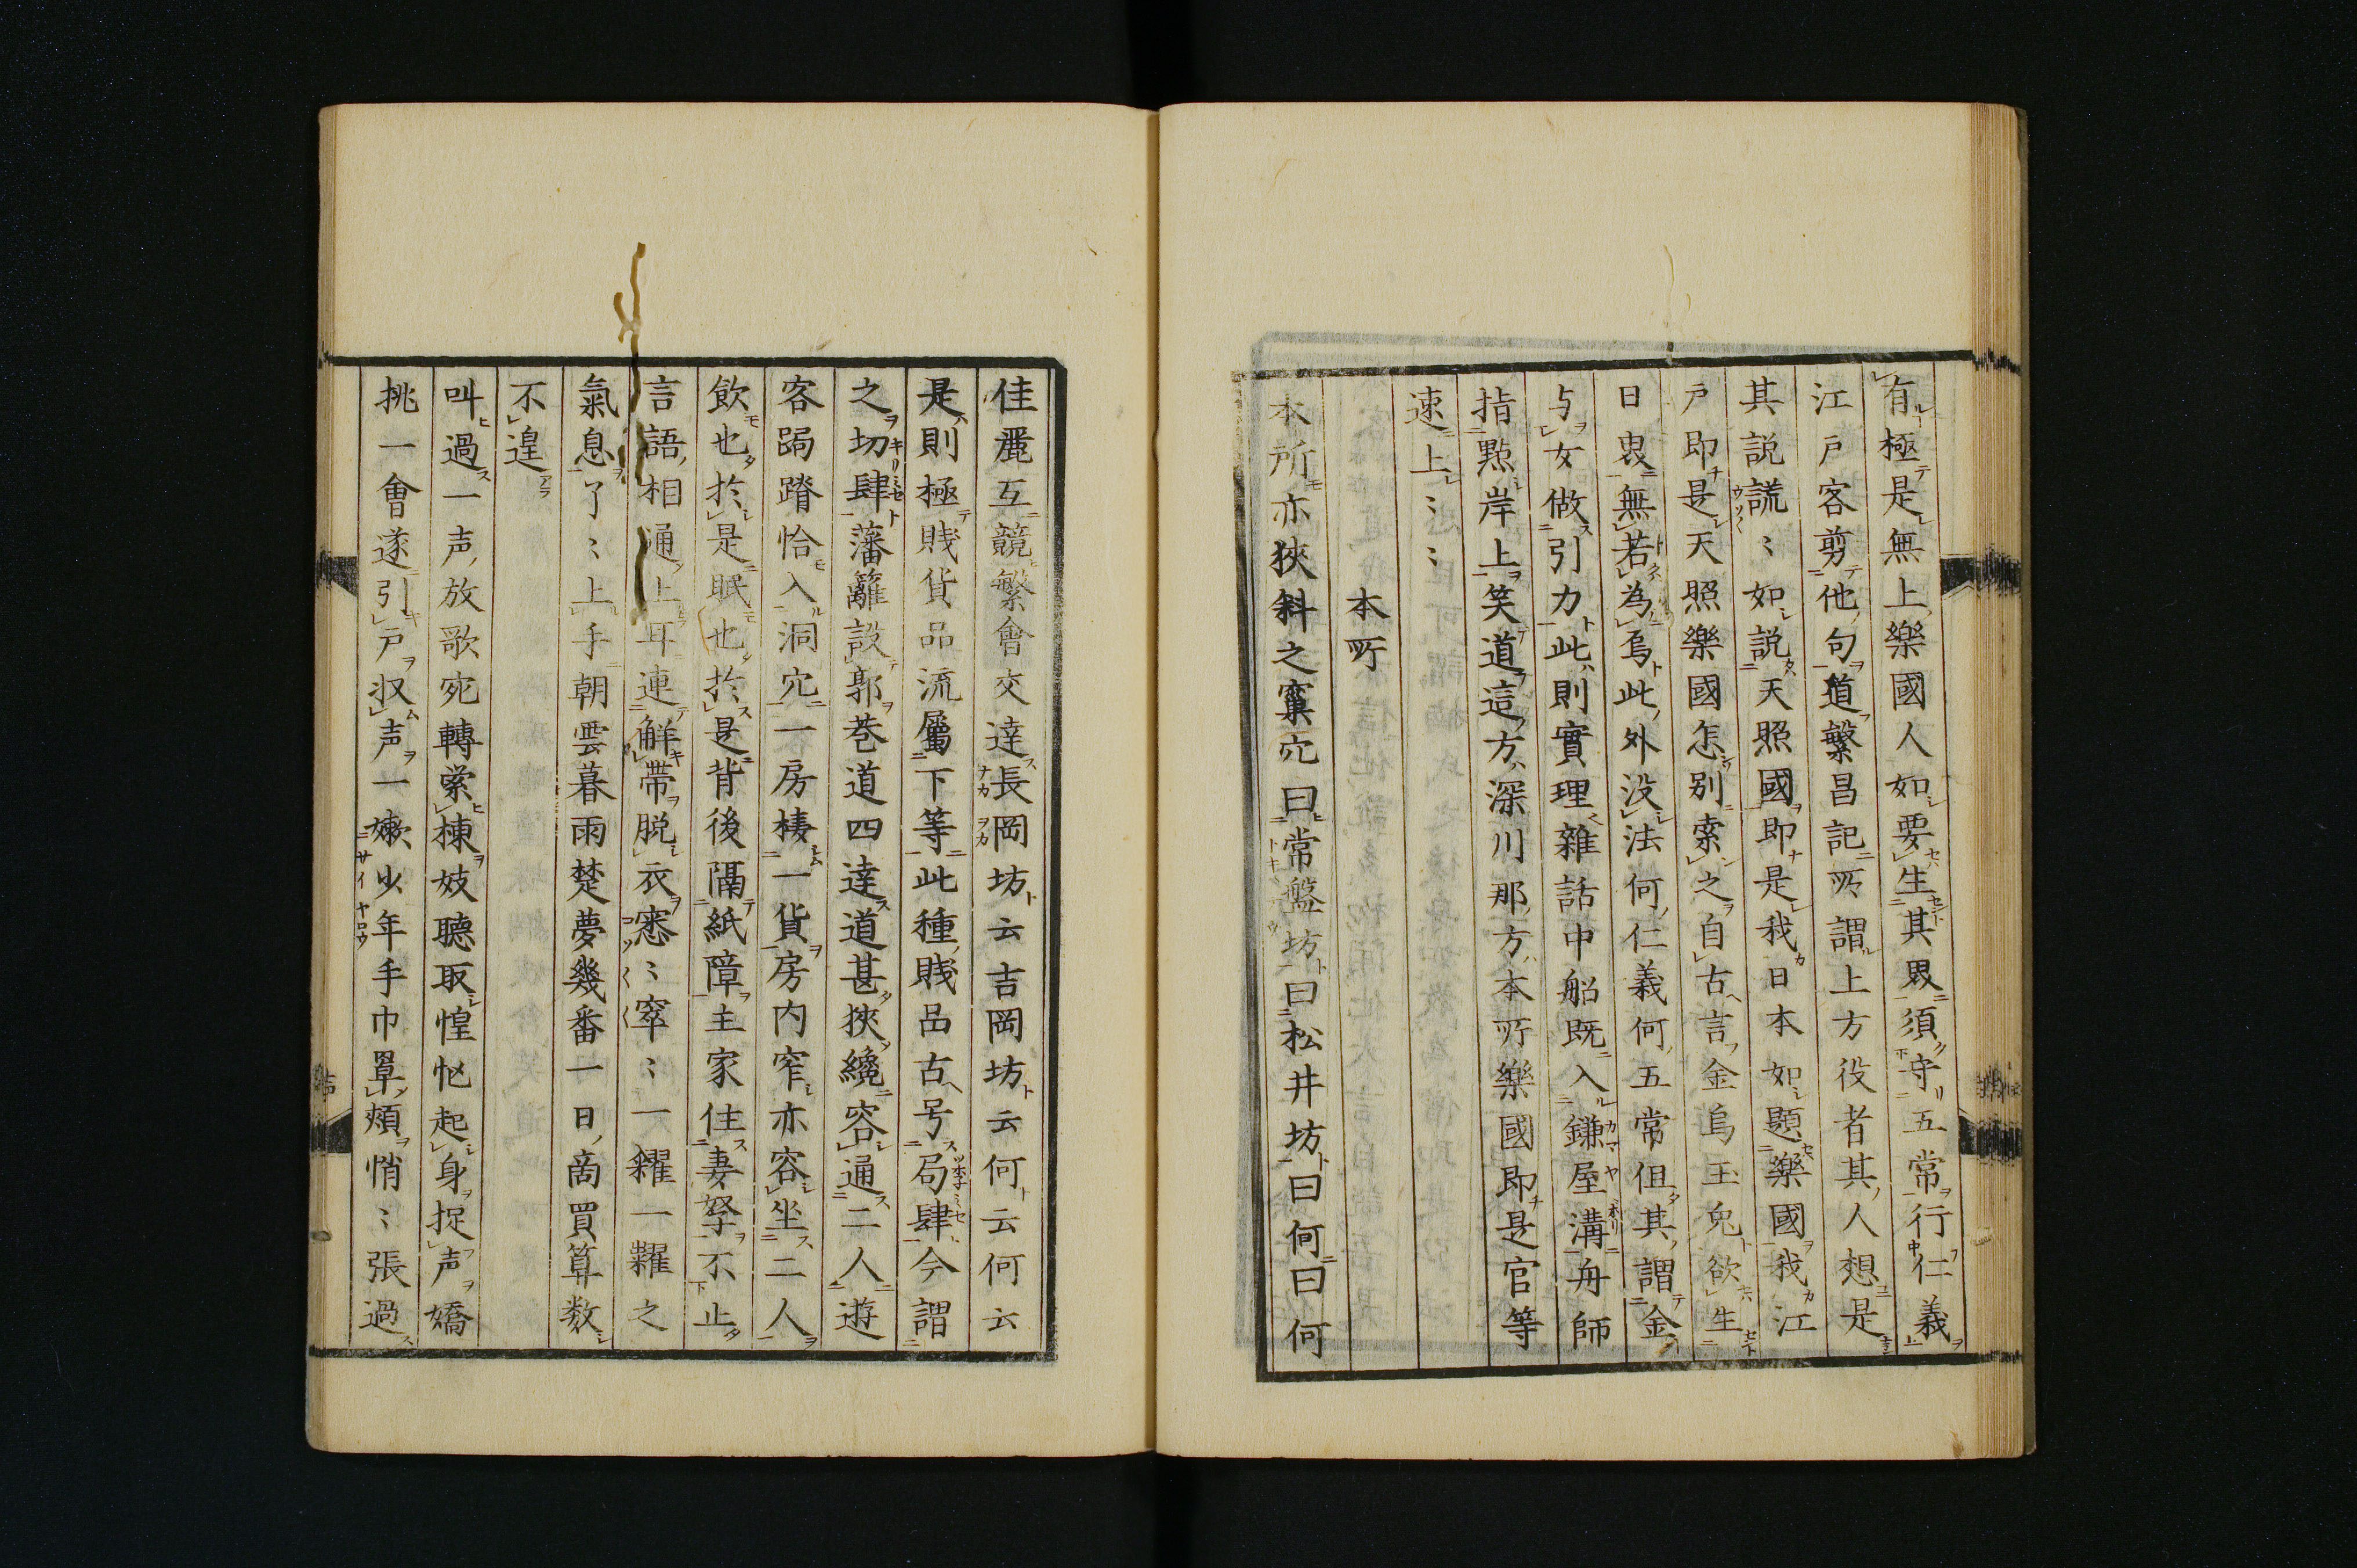 有極是無上樂國人如要生其界須守五常行仁義
江戸客剪他句道繁昌記所謂上方役者其人想是
其説謊〻如説天照國即是我日本如題樂國我江
戸即是天照樂國怎別索之自古言金烏玉兔欲生
日衷無若為烏此外没法何仁義何五常但其謂金
与女做引力此則實理雜話中船既入鎌屋溝舟師
指點岸上笑道這方深川那方本所樂國即是官等
速上〻
本所
本所亦狹斜之窠穴曰常盤坊曰松井坊曰何曰何
佳麗互競繁會交達長岡坊云吉岡坊云何云何云
是則極賤貨品流屬下等此種賤品古号局肆今謂
之切肆藩籬設郭巷道四達道甚狹纔容通二人遊
客跼蹐恰入洞穴一房棲一貨房内窄亦容坐二人
飲也於是眠也於是背後隔紙障主家住妻孥不止
言語相通上耳連解帶脱衣窸〻窣〻一糴一糶之
氣息了〻上手朝雲暮雨楚夢幾番一日商買算数
不遑
叫過一声放歌宛轉縈棟妓聽取惶忙起身捉声嬌
挑一會遂引戸収声一嫩少年手巾罩頰悄〻張過